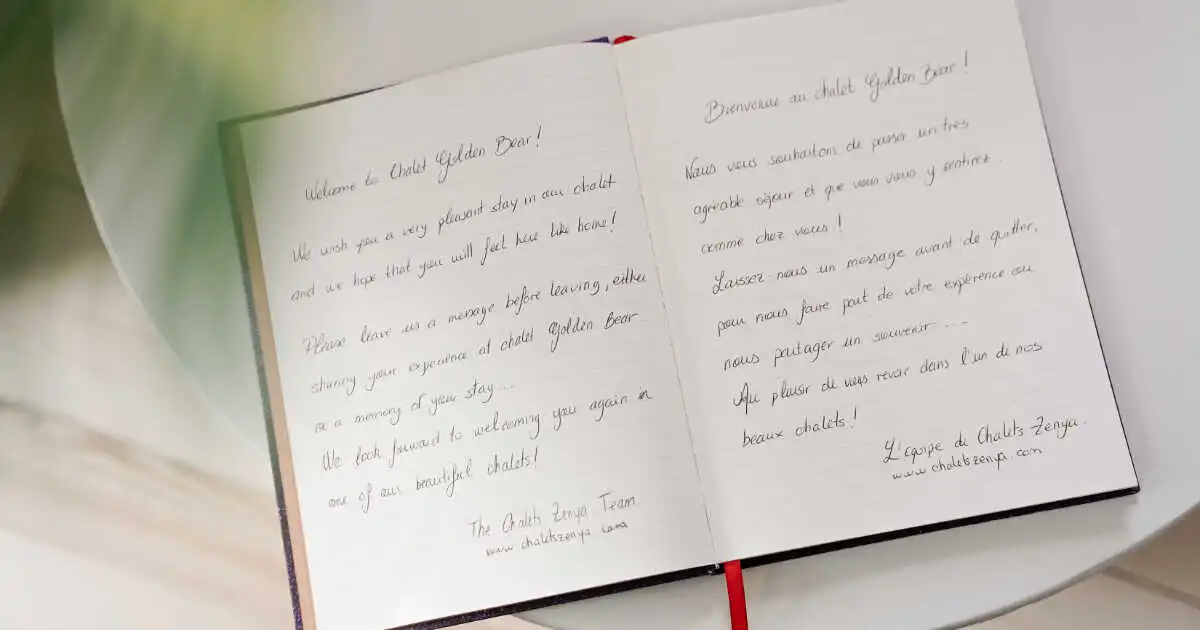 Welcome to Chalet Golden Bear!
We wish you a very pleasant stay in our chalet
and we hope that you will feel here like home!
Please leave us a message before leaving, either
sharing your experience at chalet Golden Bear
or a memory of your stay...
We look forward to welcoming you again in
one of our beautiful chalets!
The Chalets Zenya Team
www.chaletszenya.com
Bienvenue au chalet Golden Bear!
Nous vous souhaitons de passer un très
agréable séjour et que vous vous y sentirez
comme chez vous!
Laissez-nous un message avant de quitter,
pour nous faire part de votre expérience ou
nous partager un souvenir...
Au plaisir de vous revoir dans l'un de nos
beaux chalets!
L'équipe de Chalets Zenya.
www.chaletszenya.com